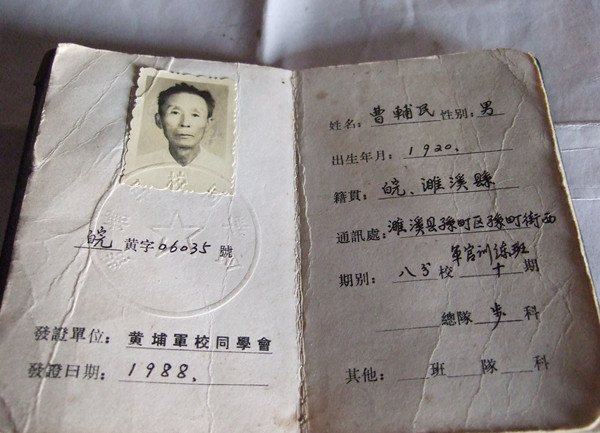 皖 黄字06035號
發證單位：黄埔軍校同學會
發證日期：1988.
姓名：曹輔民 性别：男
出生年月：1920.
籍貫：皖、濉溪縣
通訊處：濉溪县孫町区孫町街西
軍官训练班
期别：八分校 十 期
總隊 步 科
其他： 班 隊 科